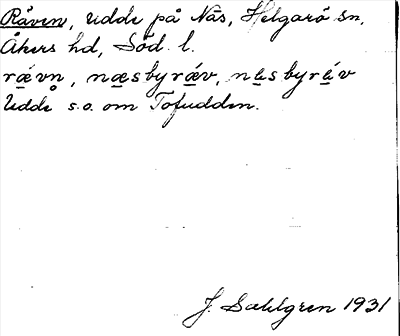 Räven, udde på Näs, Helgarö sn,
Åkers hd, Söd. l.
rævn̥, næsbyræv, næsbyrǽv
Udde s.o. om Tofudden.
J. Sahlgren 1931